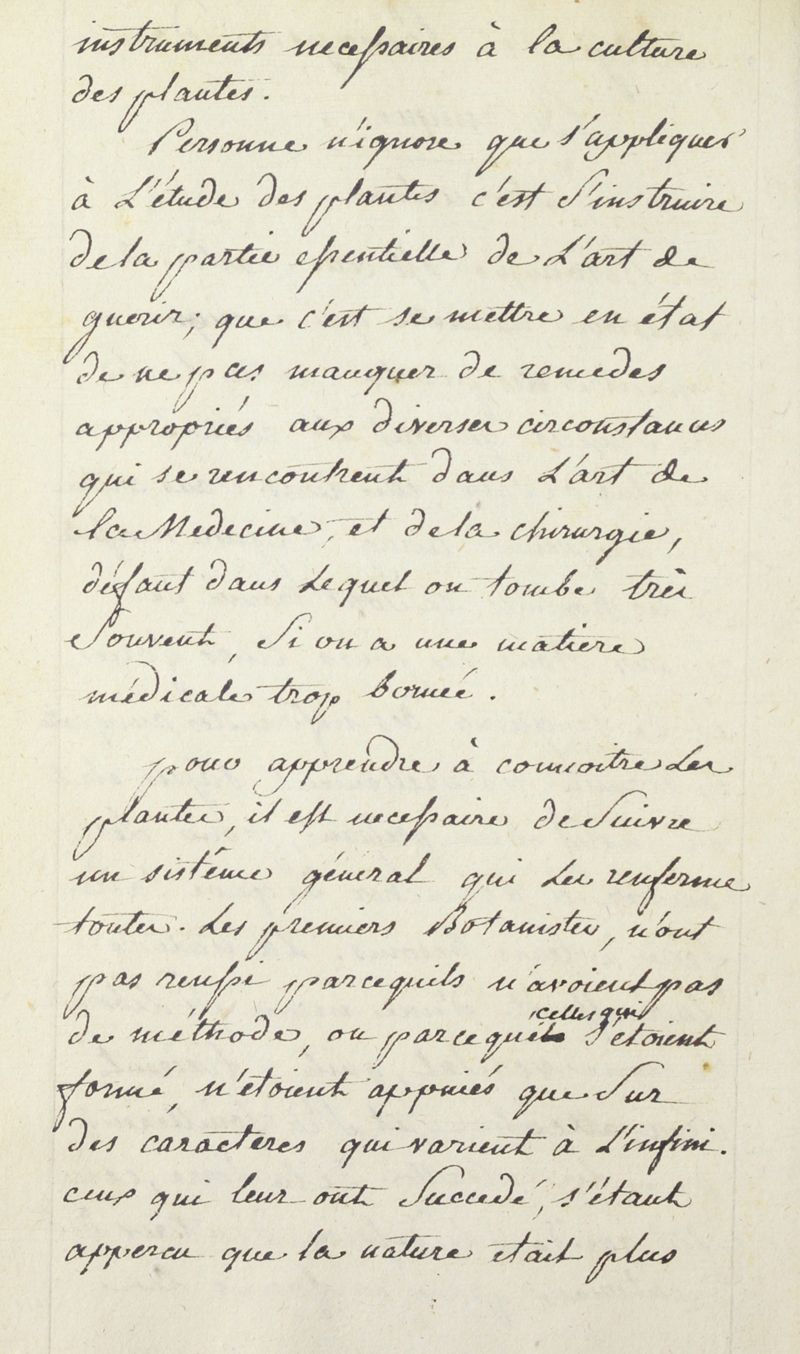 instruments necessaires à la culture
des plantes.
Personne n'ignore que s'appliquer
à L'étude des plantes c'est s'instruire
de la partie essentielle de L'art de
guerir; que c'est se mettre en état
de ne pas manquer de remedes
appropriés aux diverses circonstances
qui se rencontrent dans L'art de
la Medecine, et de la chirurgie,
défaut dans Lequel on tombe très
souvent, si on a une matiere
médicale trop bornée.
pour apprendre à connoitre Les
plantes, il est necessaire de suivre
un sistême géneral qui Les renferme
toutes. Les premiers Botanistes, n'ont
pas reussi parcequils n'avoient pas
celles qui
de méthode, ou parceque s'etoient
formé, n'etoient appuiés que sur
des caracteres qui varient à L'infini.
ceux qui leur ont succedé, s'étant
appercu que la nature etait plus